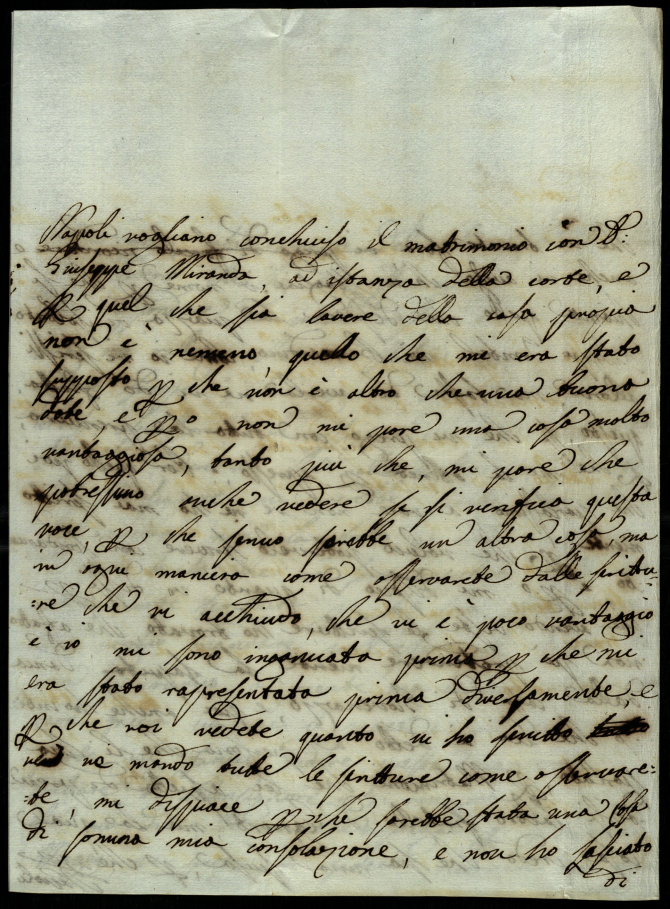 Napoli vogliano conchiuso il matrimonio con D:
Giuseppe Miranda, ad istanza della corte, e
p quel che sia l'avere della casa propria
non è nemeno quello che mi era stato
supposto p che non è altro che una buona
dote, e p.º non mi pare una cosa molto
vantaggiosa, tanto più che, mi pare che
potressimo anche vedere se si verifica questa
voce, p che senno sarebbe un altra cosa, ma
in ogni maniera come osservarete dalle scrittu-
:re che vi acchiudo, che vi è poco vantaggio
e io mi sono incaricata prima p che mi
era stato rapresentata prima diversamente, e
p che voi vedete quanto vi ho scritto
ve mando tutte le scritture come osservare:
:te, mi dispiace p che sarebbe stata una cosa
di somma mia consolazione, e non ho lasciato
di